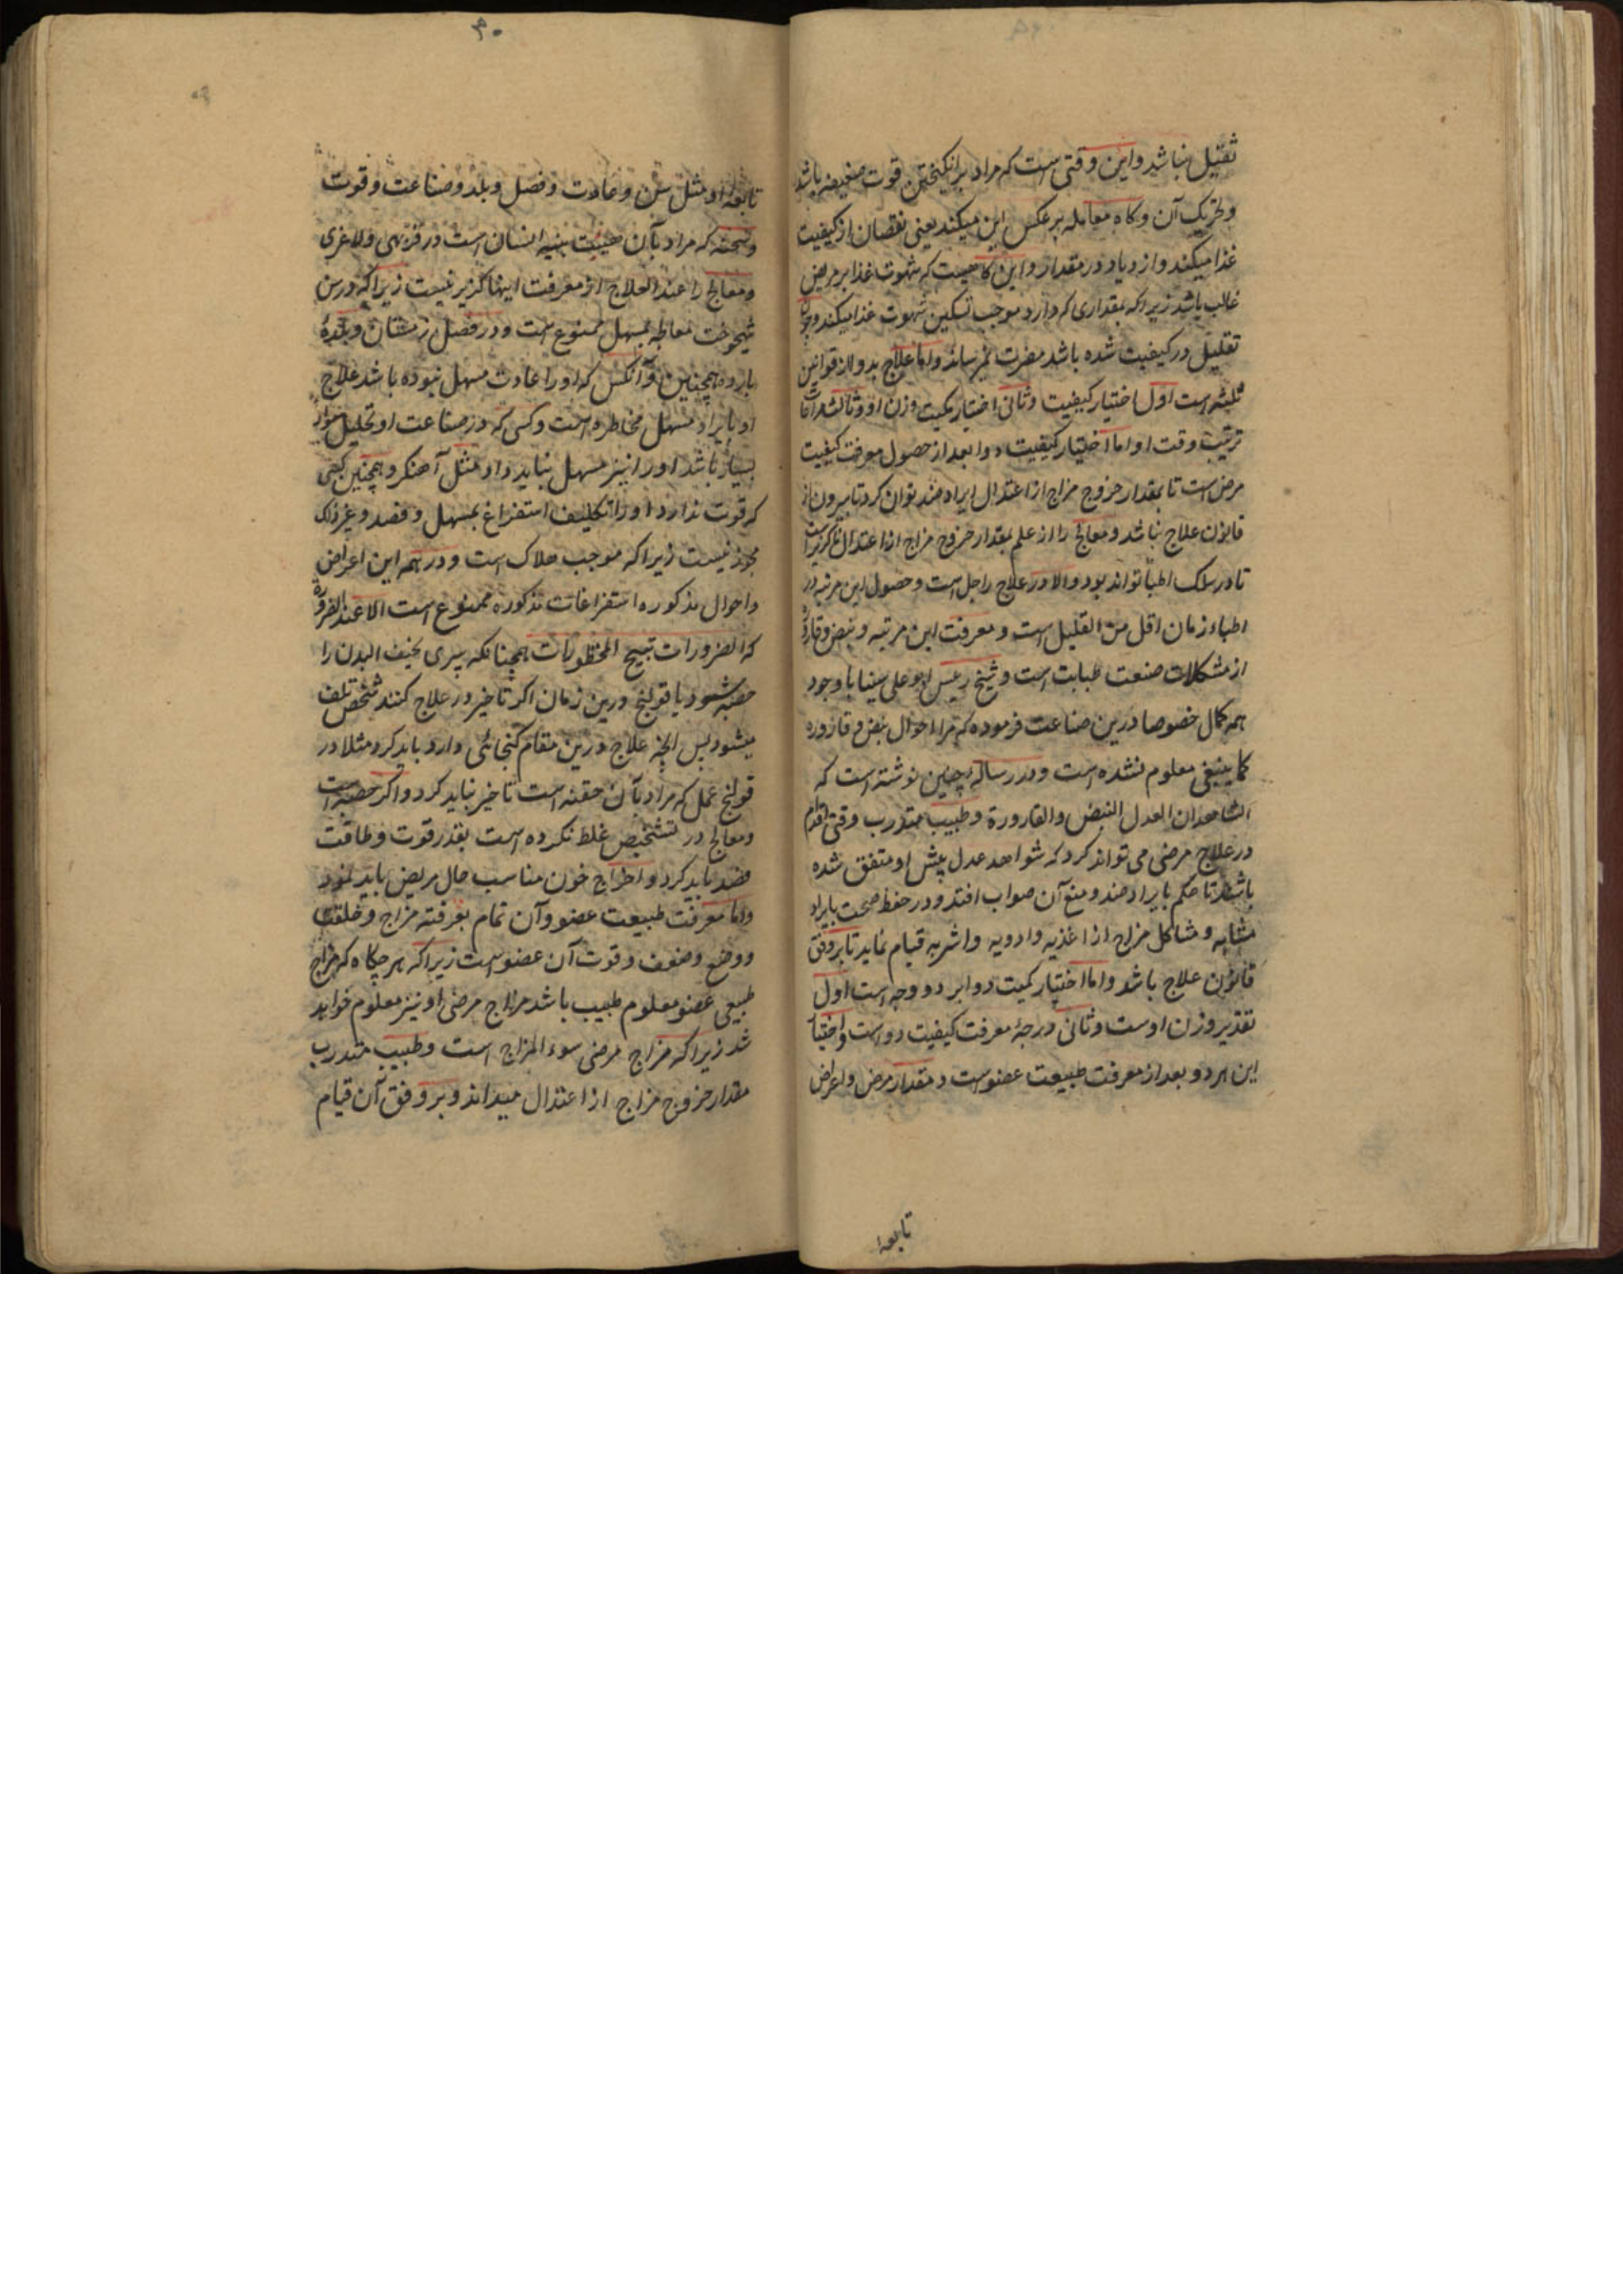 ثقیل نباشد و این وقتی است که مراد برانگیختن قوت ضعیفه باشد
و تحریک آن و گاه معامله برعکس این میکند یعنی نقصان از کیفیت
غذا میکند و ازدیاد در مقدار و این گاهیست که شهوت غذا بر مریض
غالب باشد زیراکه بمقداری که دارد موجب تسکین شهوت غذا میکند و چون
تقلیل در کیفیت شده باشد مضرت نمیرساند و اما علاج بدوا از قوانین
ثلثه است اول اختیار کیفیت و ثانی اختیار کمیت وزن او و ثالث
ترتیب وقت او و اما اختیار کیفیت دوا بعد از حصول معرفت کیفیت
مرض است تا بمقدار خروج مزاج از اعتدال ایراد ضد توان کرد تا بیرون از
قانون علاج نباشد و معالج را از علم بمقدار خروج مزاج از اعتدال ناگزیر است
تا در سلک اطبا تواند بود والا در علاج راجل است و حصول این مرتبه در
اطباء زمان اقل من القلیل است و معرفت این مرتبه و نبض و قاروره
از مشکلات صنعت طبابت است و شیخ رئیس ابو علی سینا با وجود
همه کمال خصوصا درین صناعت فرموده که مرا احوال نبض و قاروره
کما ینبغی معلوم نشده است و در رساله چنین نوشته است که
الشاهدان العدل النبض والقارورة و طبیب متدرب وقتی اقدام
در علاج مرضی می تواند کرد که شواهد عدل پیش او متفق شده
باشند تا حکم بایراد ضد و منع آن صواب افتد و در حفظ صحت بایراد
مشابه و مشاکل مزاج از اغذیه و ادویه و اشربه قیام نماید تا بر وفق
قانون علاج باشد و اما اختیار کمیت دوا بر دو وجه است اول
تقدیر وزن اوست و ثانی درجهٔ معرفت کیفیت دواست و اختیار
این هر دو بعد از معرفت طبیعت عضوست و مقدار مرض و اعراض
تابعهٔ
۴۰
تابعهٔ او مثل سن و عادت و فصل و بلد و صناعت و قوت
و سحنه که مراد بآن هیئت بنیه انسان است در فربهی و لاغری
و معالج را عند العلاج از معرفت اینها گزیر نیست زیراکه در سن
شیخوخت معالجه بمسهل ممنوع است و در فصل زمستان و بلدهٔ
بارده همچنین و آنکس که او را عادت مسهل نبوده باشد علاج
او بایراد مسهل مخاطره است و کسی که در صناعت او تحلیل مواد
بسیار باشد او را نیز مسهل نباید داد مثل آهنگر و همچنین کسی
که قوت ندارد او را تکلیف استفراغ بمسهل و فصد و غیر ذلک
مجوز نیست زیراکه موجب هلاک است و در همه این اعراض
و احوال مذکوره استفراغات مذکوره ممنوع است الا عند الضرورة
که الضرورات تبیح المحظورات همچنانکه پیری نحیف البدن را
حصبه شود یا قولنج و درین زمان اگر تاخیر در علاج کنند شخص تلف
میشود پس آنچه علاج درین مقام گنجائی دارد باید کرد مثلا در
قولنج عمل که مراد بآن حقنه است تاخیر نباید کرد و اگر حصبه است
و معالج در تشخیص غلط نکرده است بقدر قوت و طاقت
فصد باید کرد و اخراج خون مناسب حال مریض باید نمود
و اما معرفت طبیعت عضو و آن تمام بمعرفة مزاج و خلقت
و وضع و ضعف و قوت آن عضو است زیراکه هر چگاه که مزاج
طبیعی عضو معلوم طبیب باشد مزاج مرضی او نیز معلوم خواهد
شد زیراکه مزاج مرضی سوء المزاج است و طبیب متدرب
مقدار خروج مزاج از اعتدال میداند و بر وفق آن قیام